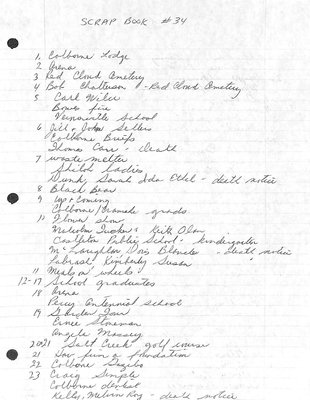 SCRAP BOOK #34
1. Colborne Lodge
2 Arena
3 Red Cloud Cemetery
4 Bob Chatterson - Red Cloud Cemetery
5 Carl Wiler
Bowes fire
Vernonville School
6 Bill & John Sellers
Colborne Briefs
Thomas Carr - Death
7 waste melter
Shiloh ladies
Dunk Sarah Ida Ethel - death notice
8 Black Bear
9 Up & Coming
Colborne/Cramahe grads
10 Flower show
Malcolm Tucker & Keith Olan
Castleton Public School - kindergarten
McLaughlin Doris Blanche - death notice
Labrash Kimberly Susan
11 Meals on wheels
12-17 School graduates
18 Arena
Percy Centennial school
19 Garden Tour
Ernee Stoneman
Angele Massey
20+21 Salt Creek golf course
21 for fun & foundation
22 Colborne Gazebo
23 Craig Semple
Colborne dentist
Kelly, Melvin Roy - death notice